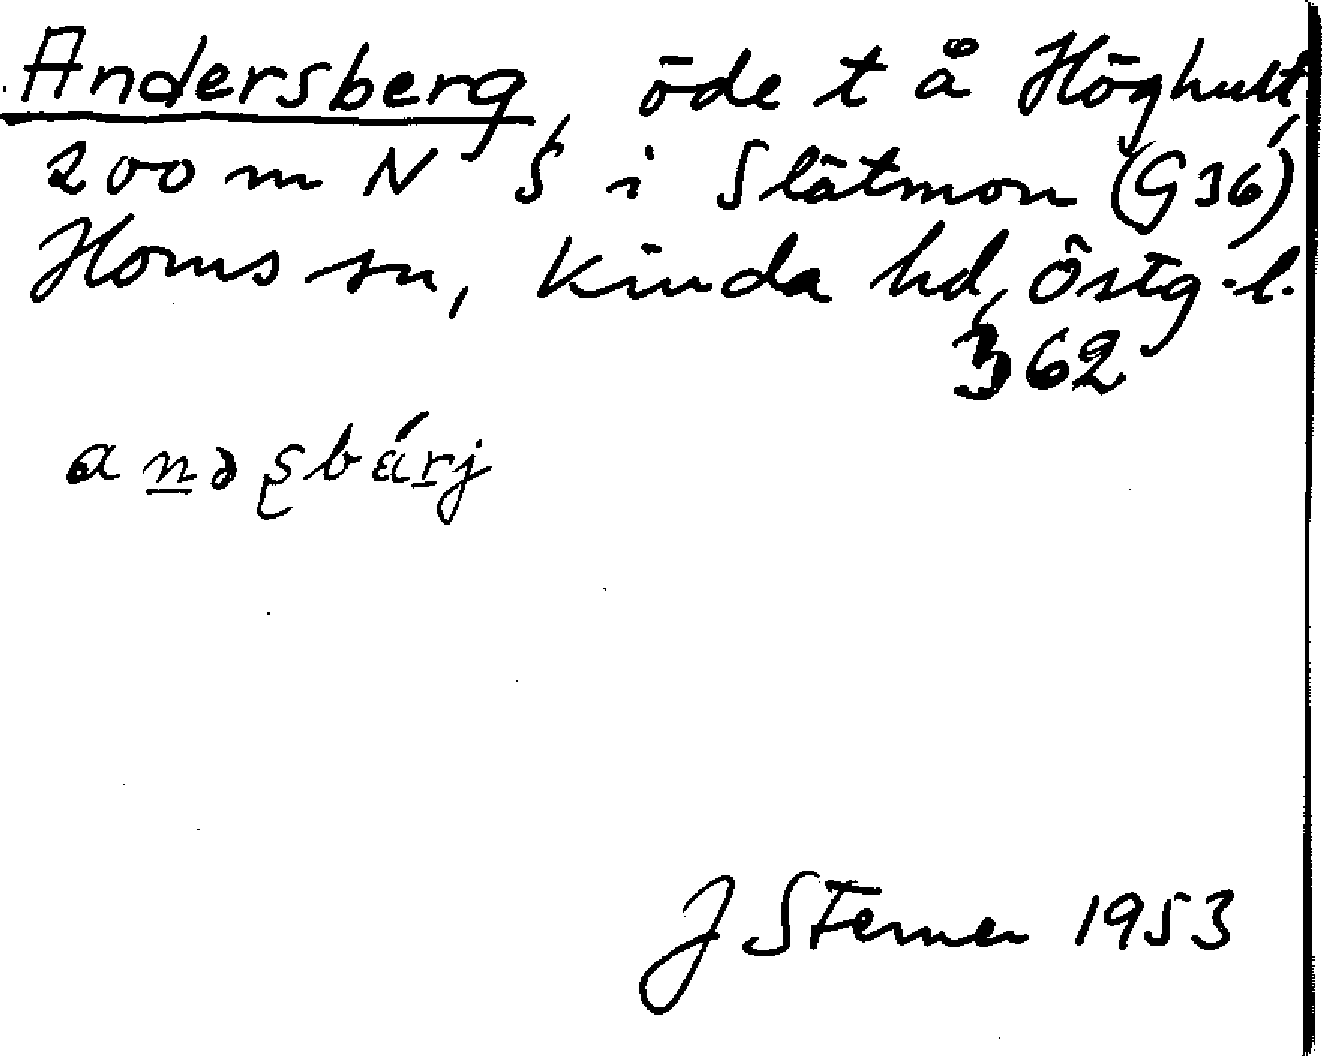 Andersberg, öde t å Höghult,
200 m N S i Slätmon (G36)
Horns sn, Kinda hd, Östg.l.
362
anəʂbárj
J Sterner 1953